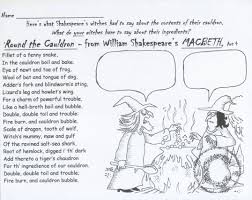 Name
Here's what Shakespeare's witches had to say about the contents of their cauldron.
What do your witches have to say about their ingredients?
'Round the Cauldron - from William Shakespeare's MACBETH, Act
Fillet of a fenny snake,
In the cauldron boil and bake.
Eye of newt and toe of frog,
Wool of bat and tongue of dog,
Adder's fork and blindworm's sting,
Lizard's leg and howlet's wing
For a charm of powerful trouble,
Like a hell-broth boil and bubble.
Double, double toil and trouble,
Fire burn, and cauldron bubble.
Scale of dragon, tooth of wolf,
Witch's mummy, maw and gulf
Of the ravined salt-sea shark,
Root of hemlock, digged i' th' dark
Add thereto a tiger's chaudron
For th' ingredience of our cauldron.
Double, double toil and trouble,
Fire burn, and cauldron bubble.